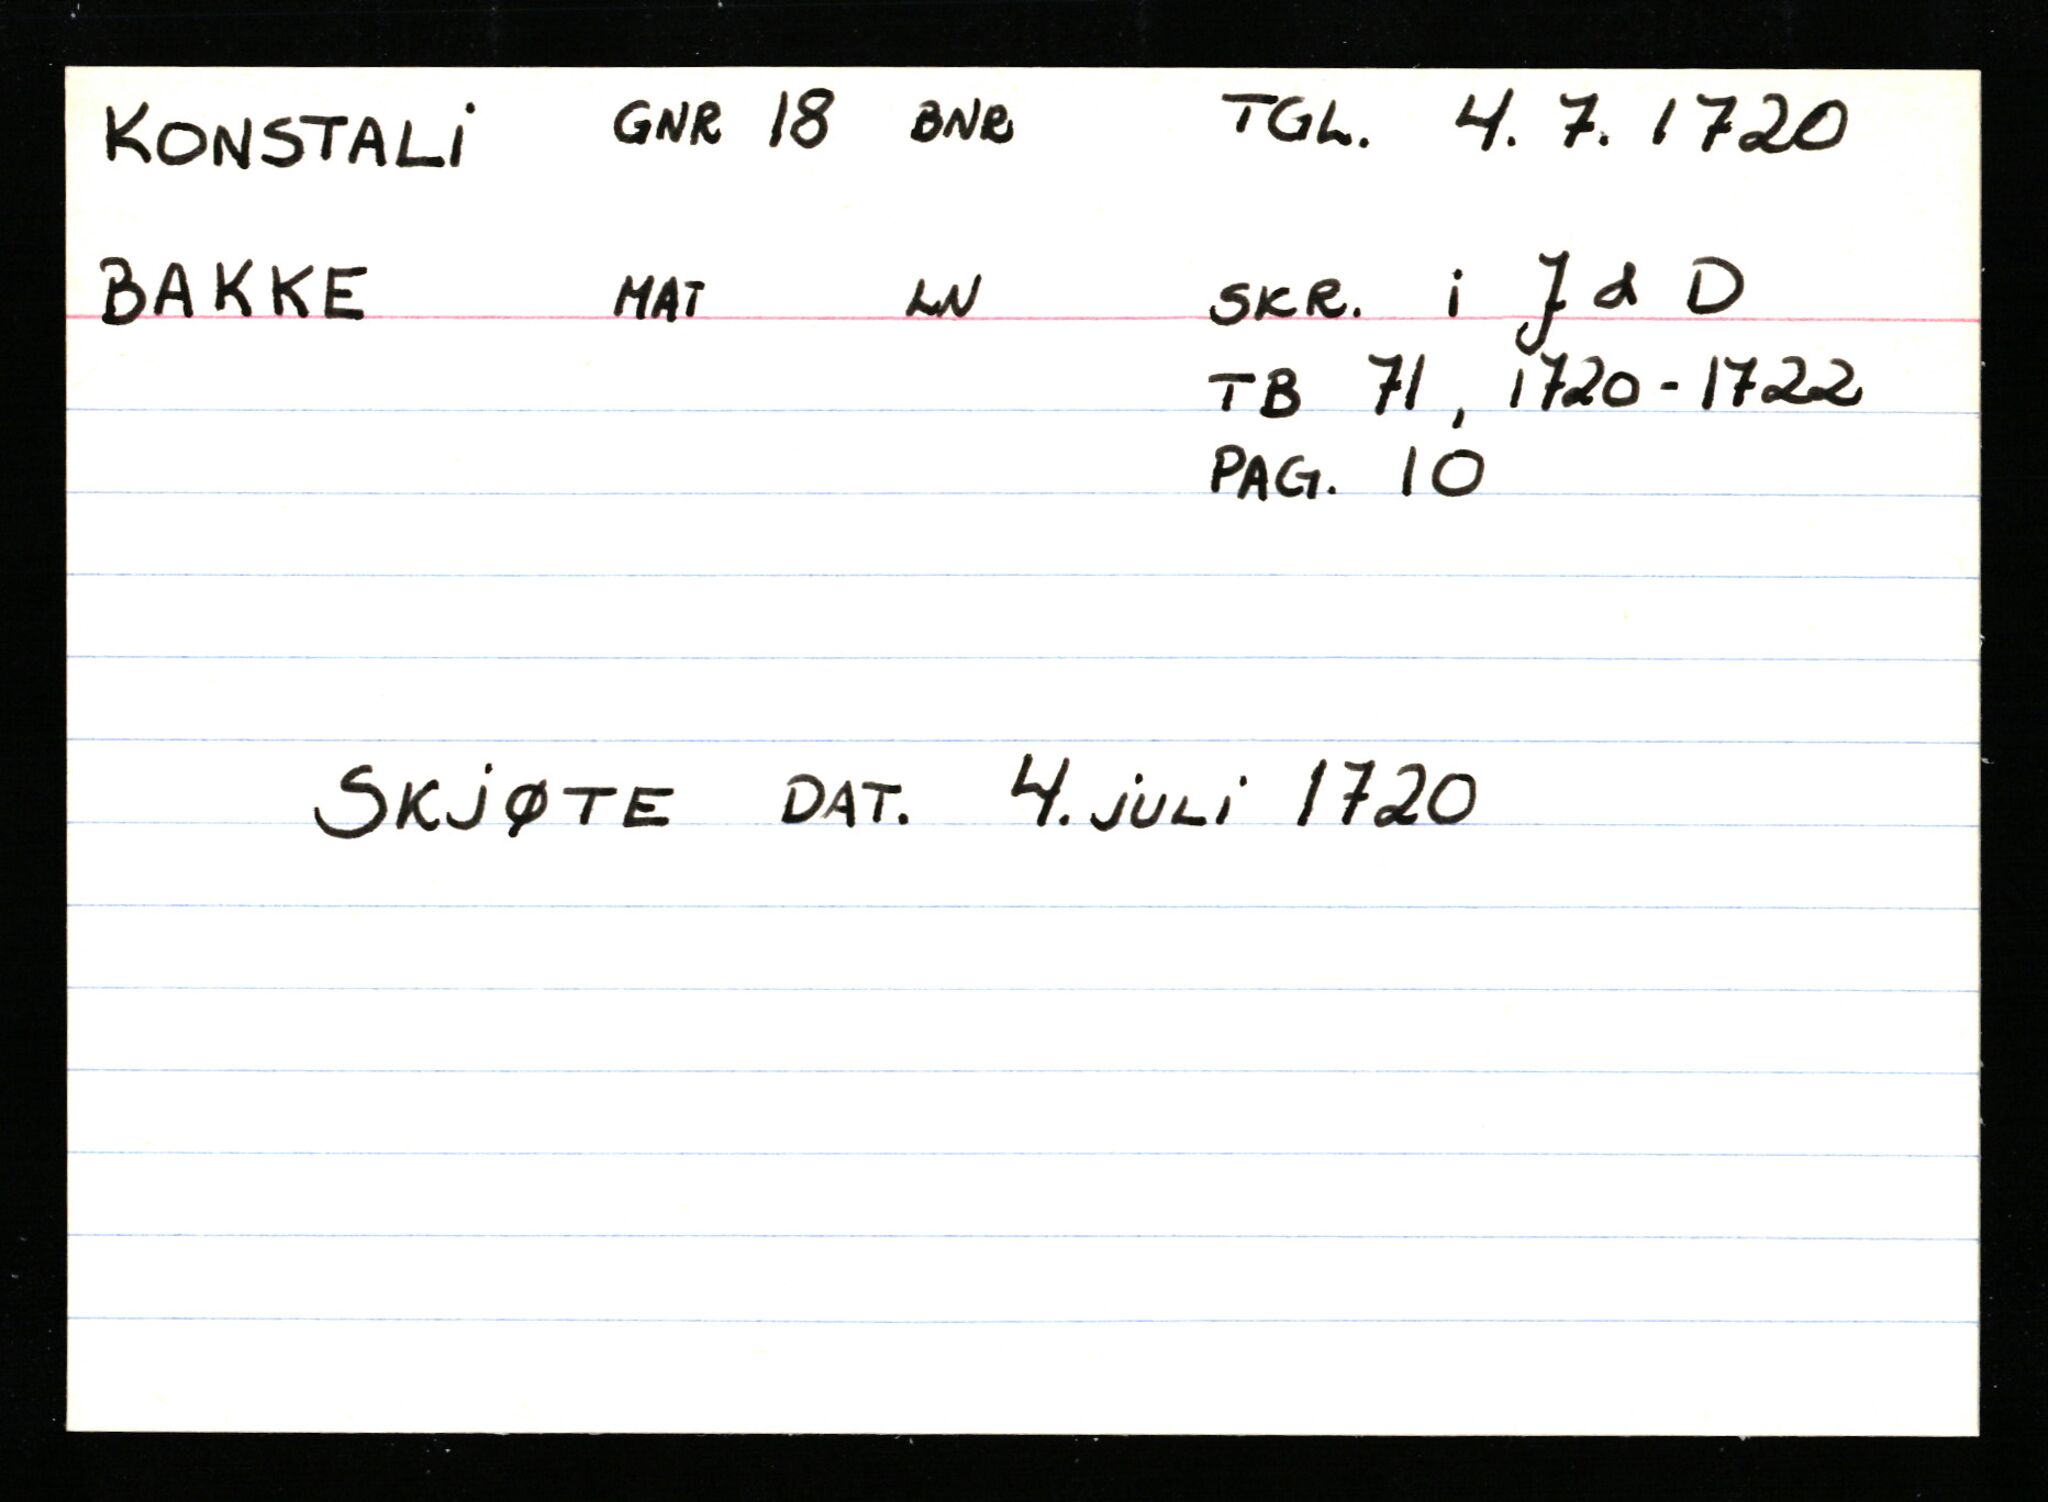 KONSTALi GNR 18 BNR TGL. 4. 7. 1720
BAKKE MAT LN SKR. i J & D
TB 71, 1720-1722
PAG. 10
SKJØTE DAT. 4. JULi 1720